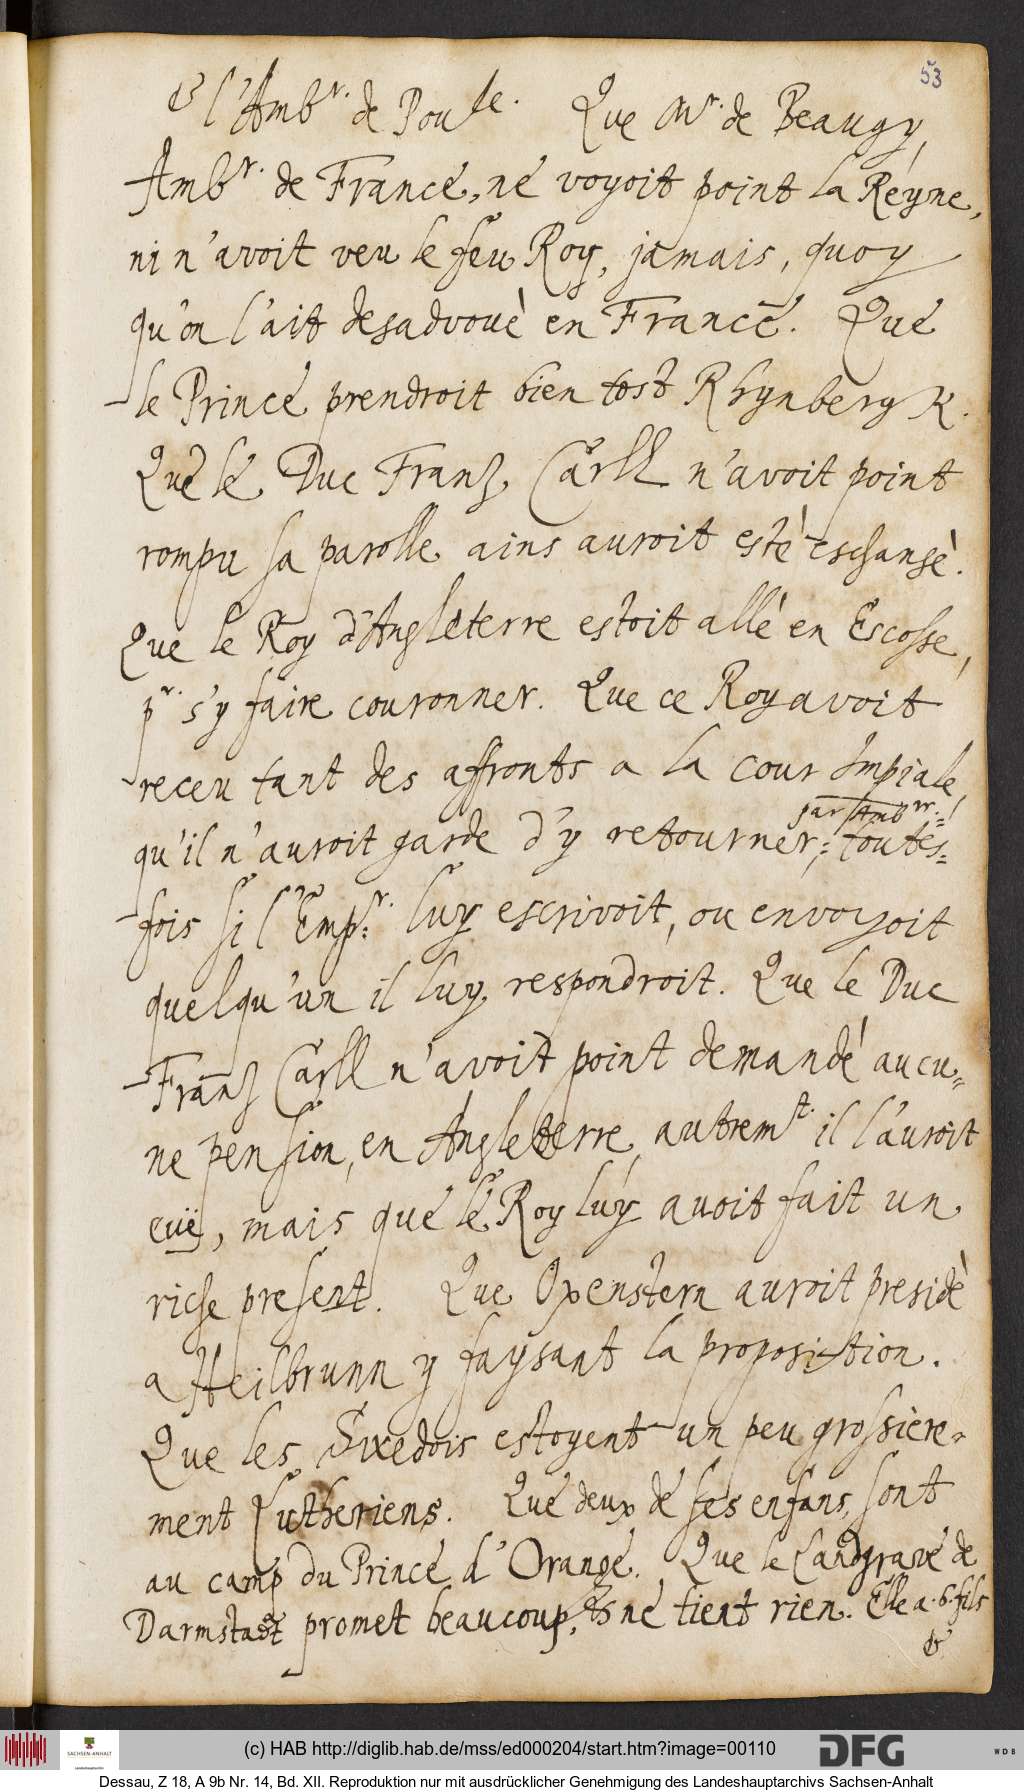 53
& l'Ambr. de Poule. Que Mr. de Beaugy,
Ambr. de France, ne voyoit point la Reyne,
ni n'avoit veu le feu Roy, jamais, quoy
qu'on l'ait desadvouè en France. Que
le Prince prendroit bien tost Rhynberg
Que le Duc Franz Carll n'avoit point
rompu sa parolle ains auroit estè eschangè.
Que le Roy d'Angleterre estoit allè en Escosse,
pr. s'y faire couronner. Que ce Roy avoit
receu tant des affronts a la cour Impiale,
par Ambrr.=
qu'il n'auroit garde d'y retourner,= toutes=
fois si l'Empr. luy escrivoit, ou envoyoit
quelqu'un il luy respondroit. Que le Duc
Franz Carll n'avoit point demandé aucu=
ne pension, en Angleterre, autremt. il l'auroit
euë, mais que le Roy luy avoit fait un
riche present. Que Oxenstern auroit presidè
a Heilbrunn y faysant la proposition.
Que les Swedois estoyent un peu grossiere=
ment Lutheriens. Que deux de ses enfans, sont
au camp du Prince d'Orange. Que le Landgrave de
Darmstadt promet beaucoup, & ne tient rien. Elle a .6. fils
&
(c) HAB http://diglib.hab.de/mss/ed000204/start.htm?image=00110
SACHSEN-ANHALT
DFG
WDB
Dessau, Z 18, A 9b Nr. 14, Bd. XII. Reproduktion nur mit ausdrücklicher Genehmigung des Landeshauptarchivs Sachsen-Anhalt